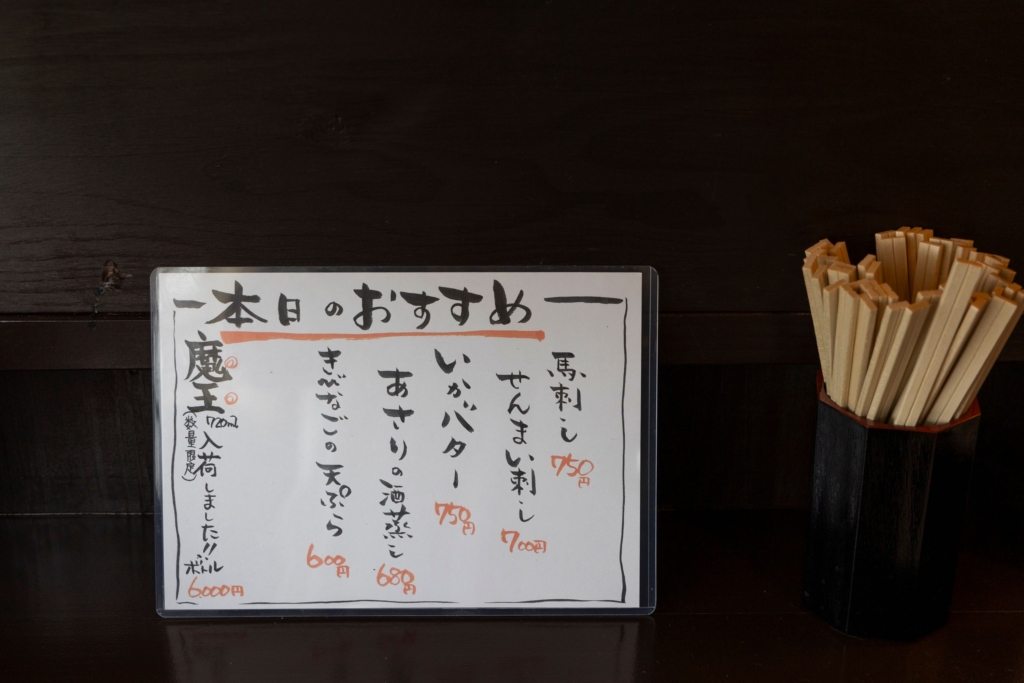 本日のおすすめ
馬刺し 750円
せんまい刺し 700円
いかバター 750円
あさりの酒蒸し 680円
きびなごの天ぷら 600円
魔王 720ml 入荷しました!! ボトル 6,000円
(数量限定)